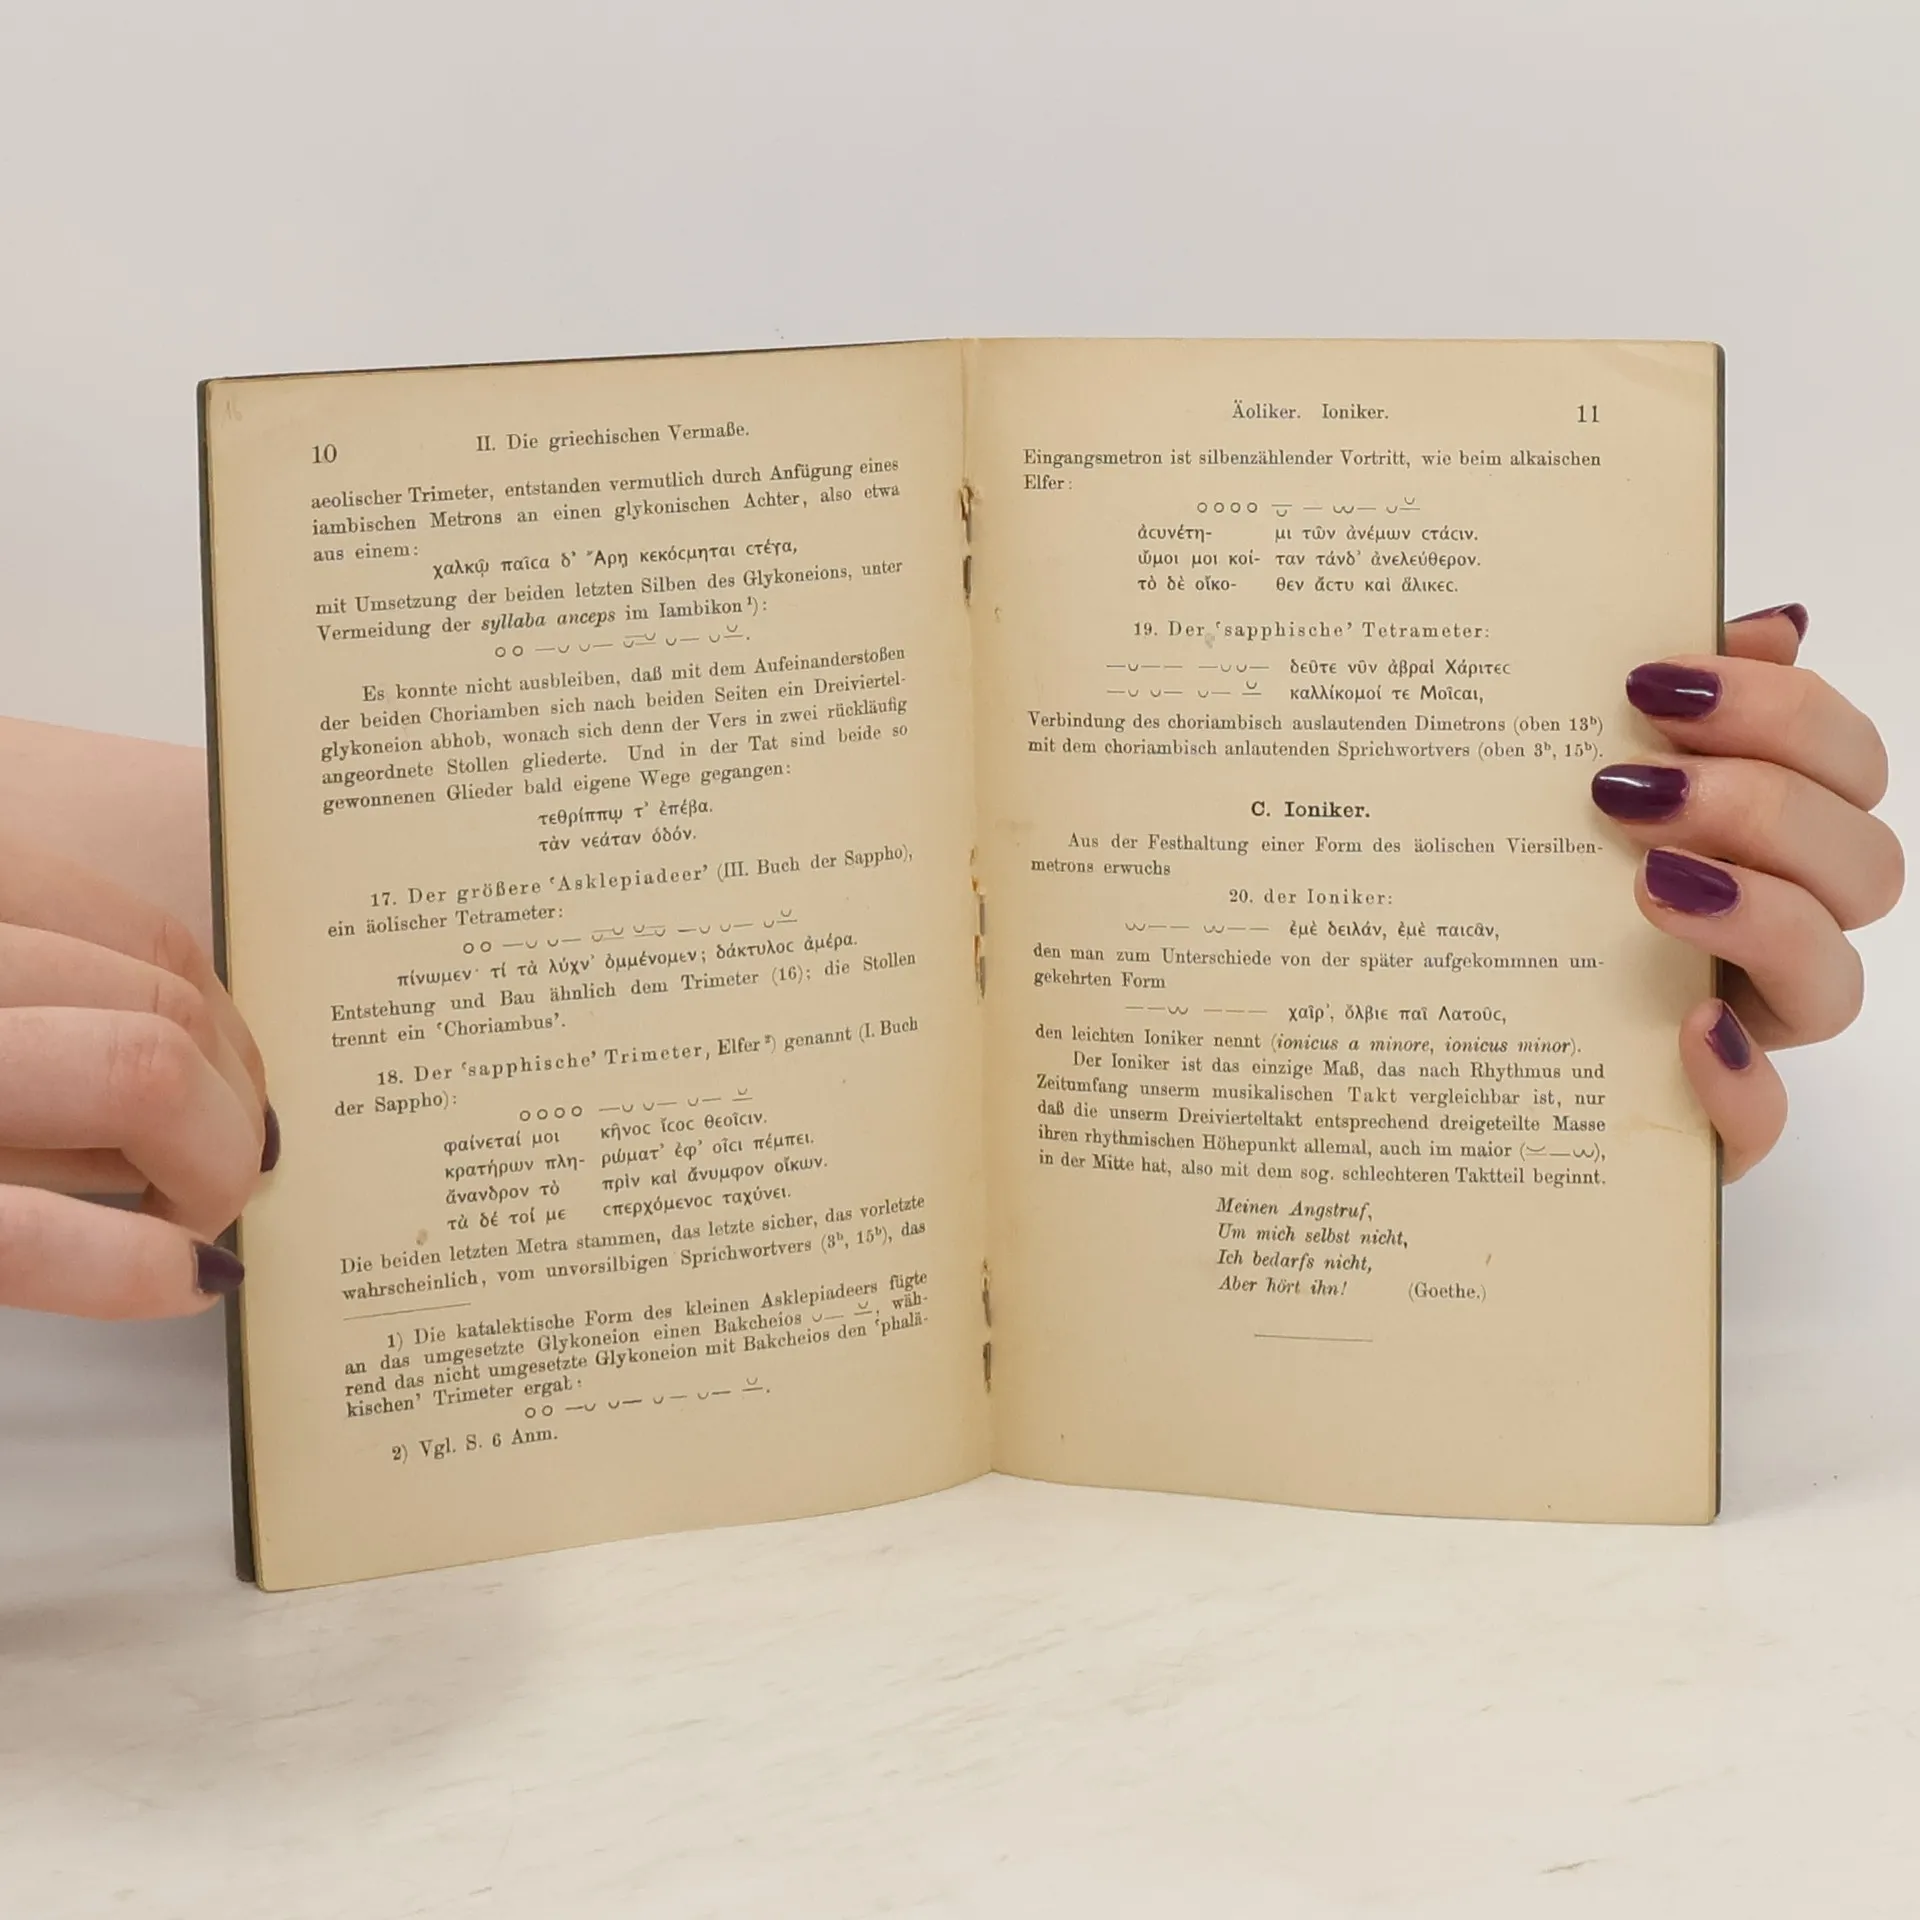 10
II. Die griechischen Vermaße.
aeolischer Trimeter, entstanden vermutlich durch Anfügung eines
iambischen Metrons an einen glykonischen Achter, also etwa
aus einem:
χαλκῷ παῖϲα δ' Ἄρῃ κεκόϲμηται ϲτέγα,
mit Umsetzung der beiden letzten Silben des Glykoneions, unter
Vermeidung der syllaba anceps im Iambikon¹):
Es konnte nicht ausbleiben, daß mit dem Aufeinanderstoßen
der beiden Choriamben sich nach beiden Seiten ein Dreiviertel-
glykoneion abhob, wonach sich denn der Vers in zwei rückläufig
angeordnete Stollen gliederte. Und in der Tat sind beide so
gewonnenen Glieder bald eigene Wege gegangen:
τεθρίππῳ τ' ἐπέβα.
τὰν νεάταν ὁδόν.
17. Der größere ‘Asklepiadeer’ (III. Buch der Sappho),
ein äolischer Tetrameter:
πίνωμεν· τί τὰ λύχν' ὀμμένομεν; δάκτυλοϲ ἀμέρα.
Entstehung und Bau ähnlich dem Trimeter (16); die Stollen
trennt ein ‘Choriambus’.
18. Der ‘sapphische’ Trimeter, Elfer²) genannt (I. Buch
der Sappho):
φαίνεταί μοι κῆνοϲ ἴϲοϲ θεοῖϲιν.
κρατήρων πλη- ρώματ' ἐφ' οἷϲι πέμπει.
ἄνανδρον τὸ πρὶν καὶ ἄνυμφον οἴκων.
τὰ δέ τοί με ϲπερχόμενοϲ ταχύνει.
Die beiden letzten Metra stammen, das letzte sicher, das vorletzte
wahrscheinlich, vom unvorsilbigen Sprichwortvers (3ᵇ, 15ᵇ), das
1) Die katalektische Form des kleinen Asklepiadeers fügte
an das umgesetzte Glykoneion einen Bakcheios ⏑ — ⏓, wäh-
rend das nicht umgesetzte Glykoneion mit Bakcheios den ‘phalä-
kischen’ Trimeter ergab:
2) Vgl. S. 6 Anm.
Äoliker. Ioniker.
11
Eingangsmetron ist silbenzählender Vortritt, wie beim alkaischen
Elfer:
ἀϲυνέτη- μι τῶν ἀνέμων ϲτάϲιν.
ὤμοι μοι κοί- ταν τάνδ' ἀνελεύθερον.
τὸ δὲ οἴκο- θεν ἄϲτυ καὶ ἅλικεϲ.
19. Der ‘sapphische’ Tetrameter:
—⏑—— —⏑⏑— δεῦτε νῦν ἁβραὶ Χάριτεϲ
—⏑ ⏑— ⏑— ⏓ καλλίκομοί τε Μοῖϲαι,
Verbindung des choriambisch auslautenden Dimetrons (oben 13ᵇ)
mit dem choriambisch anlautenden Sprichwortvers (oben 3ᵇ, 15ᵇ).
C. Ioniker.
Aus der Festhaltung einer Form des äolischen Viersilben-
metrons erwuchs
20. der Ioniker:
⏑⏑—— ⏑⏑—— ἐμὲ δειλάν, ἐμὲ παιϲᾶν,
den man zum Unterschiede von der später aufgekommnen um-
gekehrten Form
——⏑⏑ ——— χαῖρ', ὄλβιε παῖ Λατοῦϲ,
den leichten Ioniker nennt (ionicus a minore, ionicus minor).
Der Ioniker ist das einzige Maß, das nach Rhythmus und
Zeitumfang unserm musikalischen Takt vergleichbar ist, nur
daß die unserm Dreivierteltakt entsprechend dreigeteilte Masse
ihren rhythmischen Höhepunkt allemal, auch im maior (⏓—⏑⏑),
in der Mitte hat, also mit dem sog. schlechteren Taktteil beginnt.
Meinen Angstruf,
Um mich selbst nicht,
Ich bedarfs nicht,
Aber hört ihn! (Goethe.)